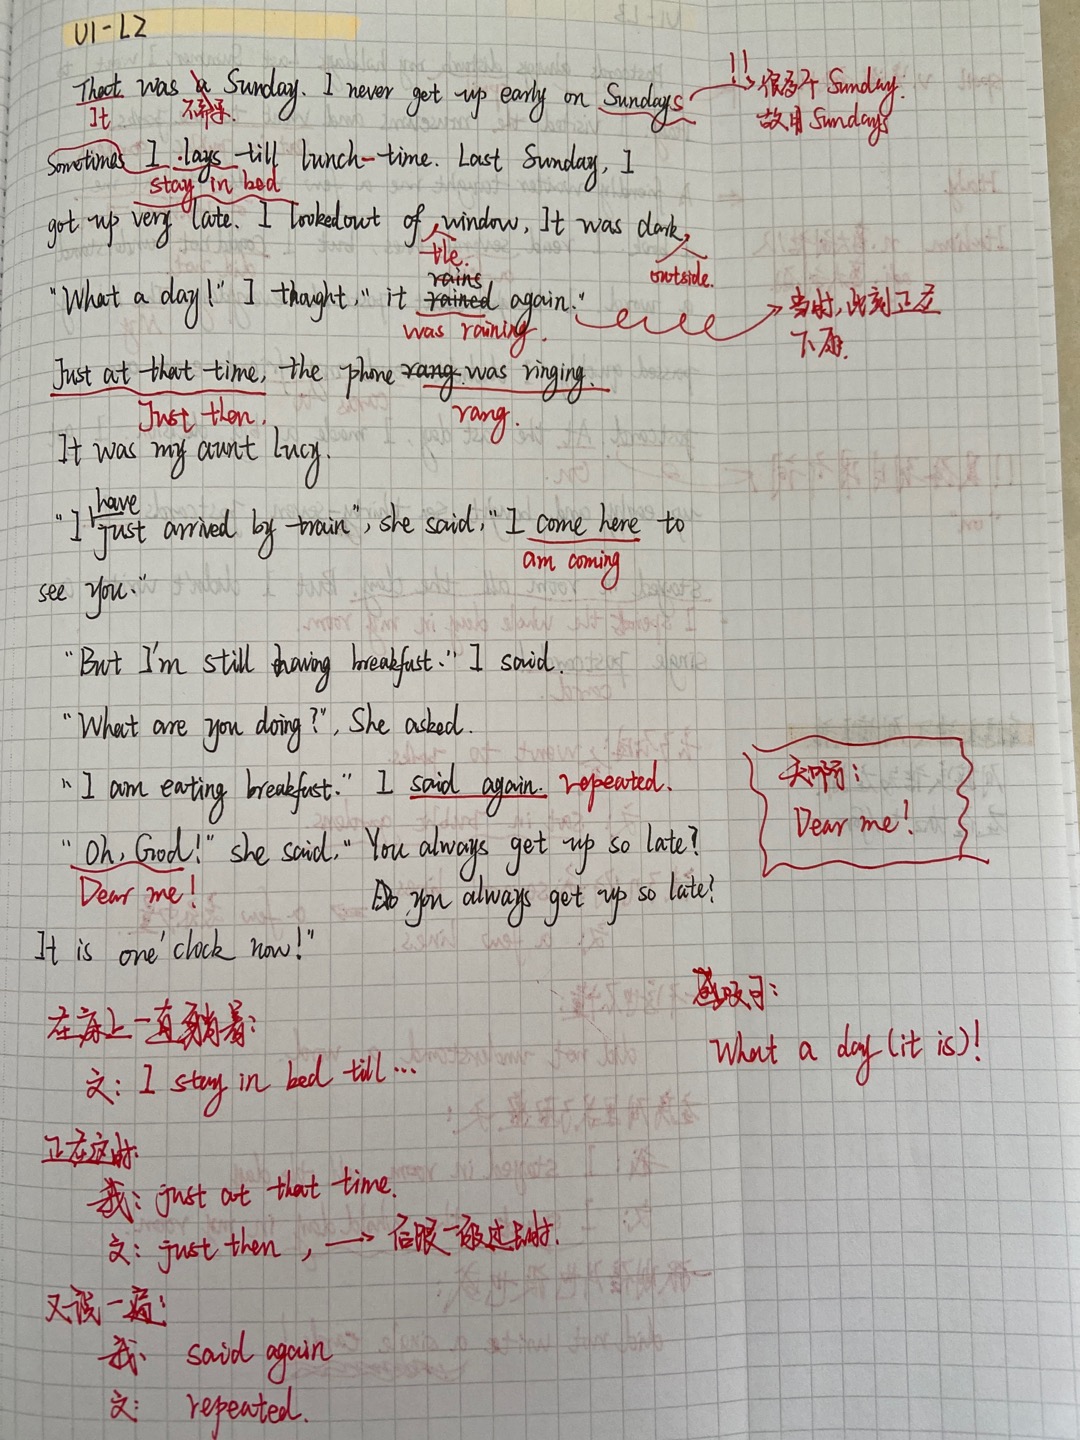 U1-L2
That was a Sunday. I never get up early on Sundays !! 很多个 Sunday.
It 不需要. 故用 Sundays
Sometimes I lays till lunch-time. Last Sunday, I
stay in bed
got up very late. I looked out of window, It was dark,
the. outside.
rains
"What a day!" I thought, "it rained again." 当时,此刻正在
was raining. 下雨.
Just at that time, the phone rang was ringing.
Just then. rang.
It was my aunt Lucy.
have
"I just arrived by train", she said, "I come here to
am coming
see you."
"But I'm still having breakfast." I said.
"What are you doing?", She asked.
"I am eating breakfast." I said again. repeated.
天啊:
Dear me!
"Oh, God!" she said, "You always get up so late?
Dear me! Do you always get up so late?
It is one 'clock now!"
在床上一直躺着:
文: I stay in bed till...
感叹句:
What a day (it is)!
正在这时:
我: just at that time.
文: just then, → 后跟一般过去时.
又说一遍:
我: said again
文: repeated.